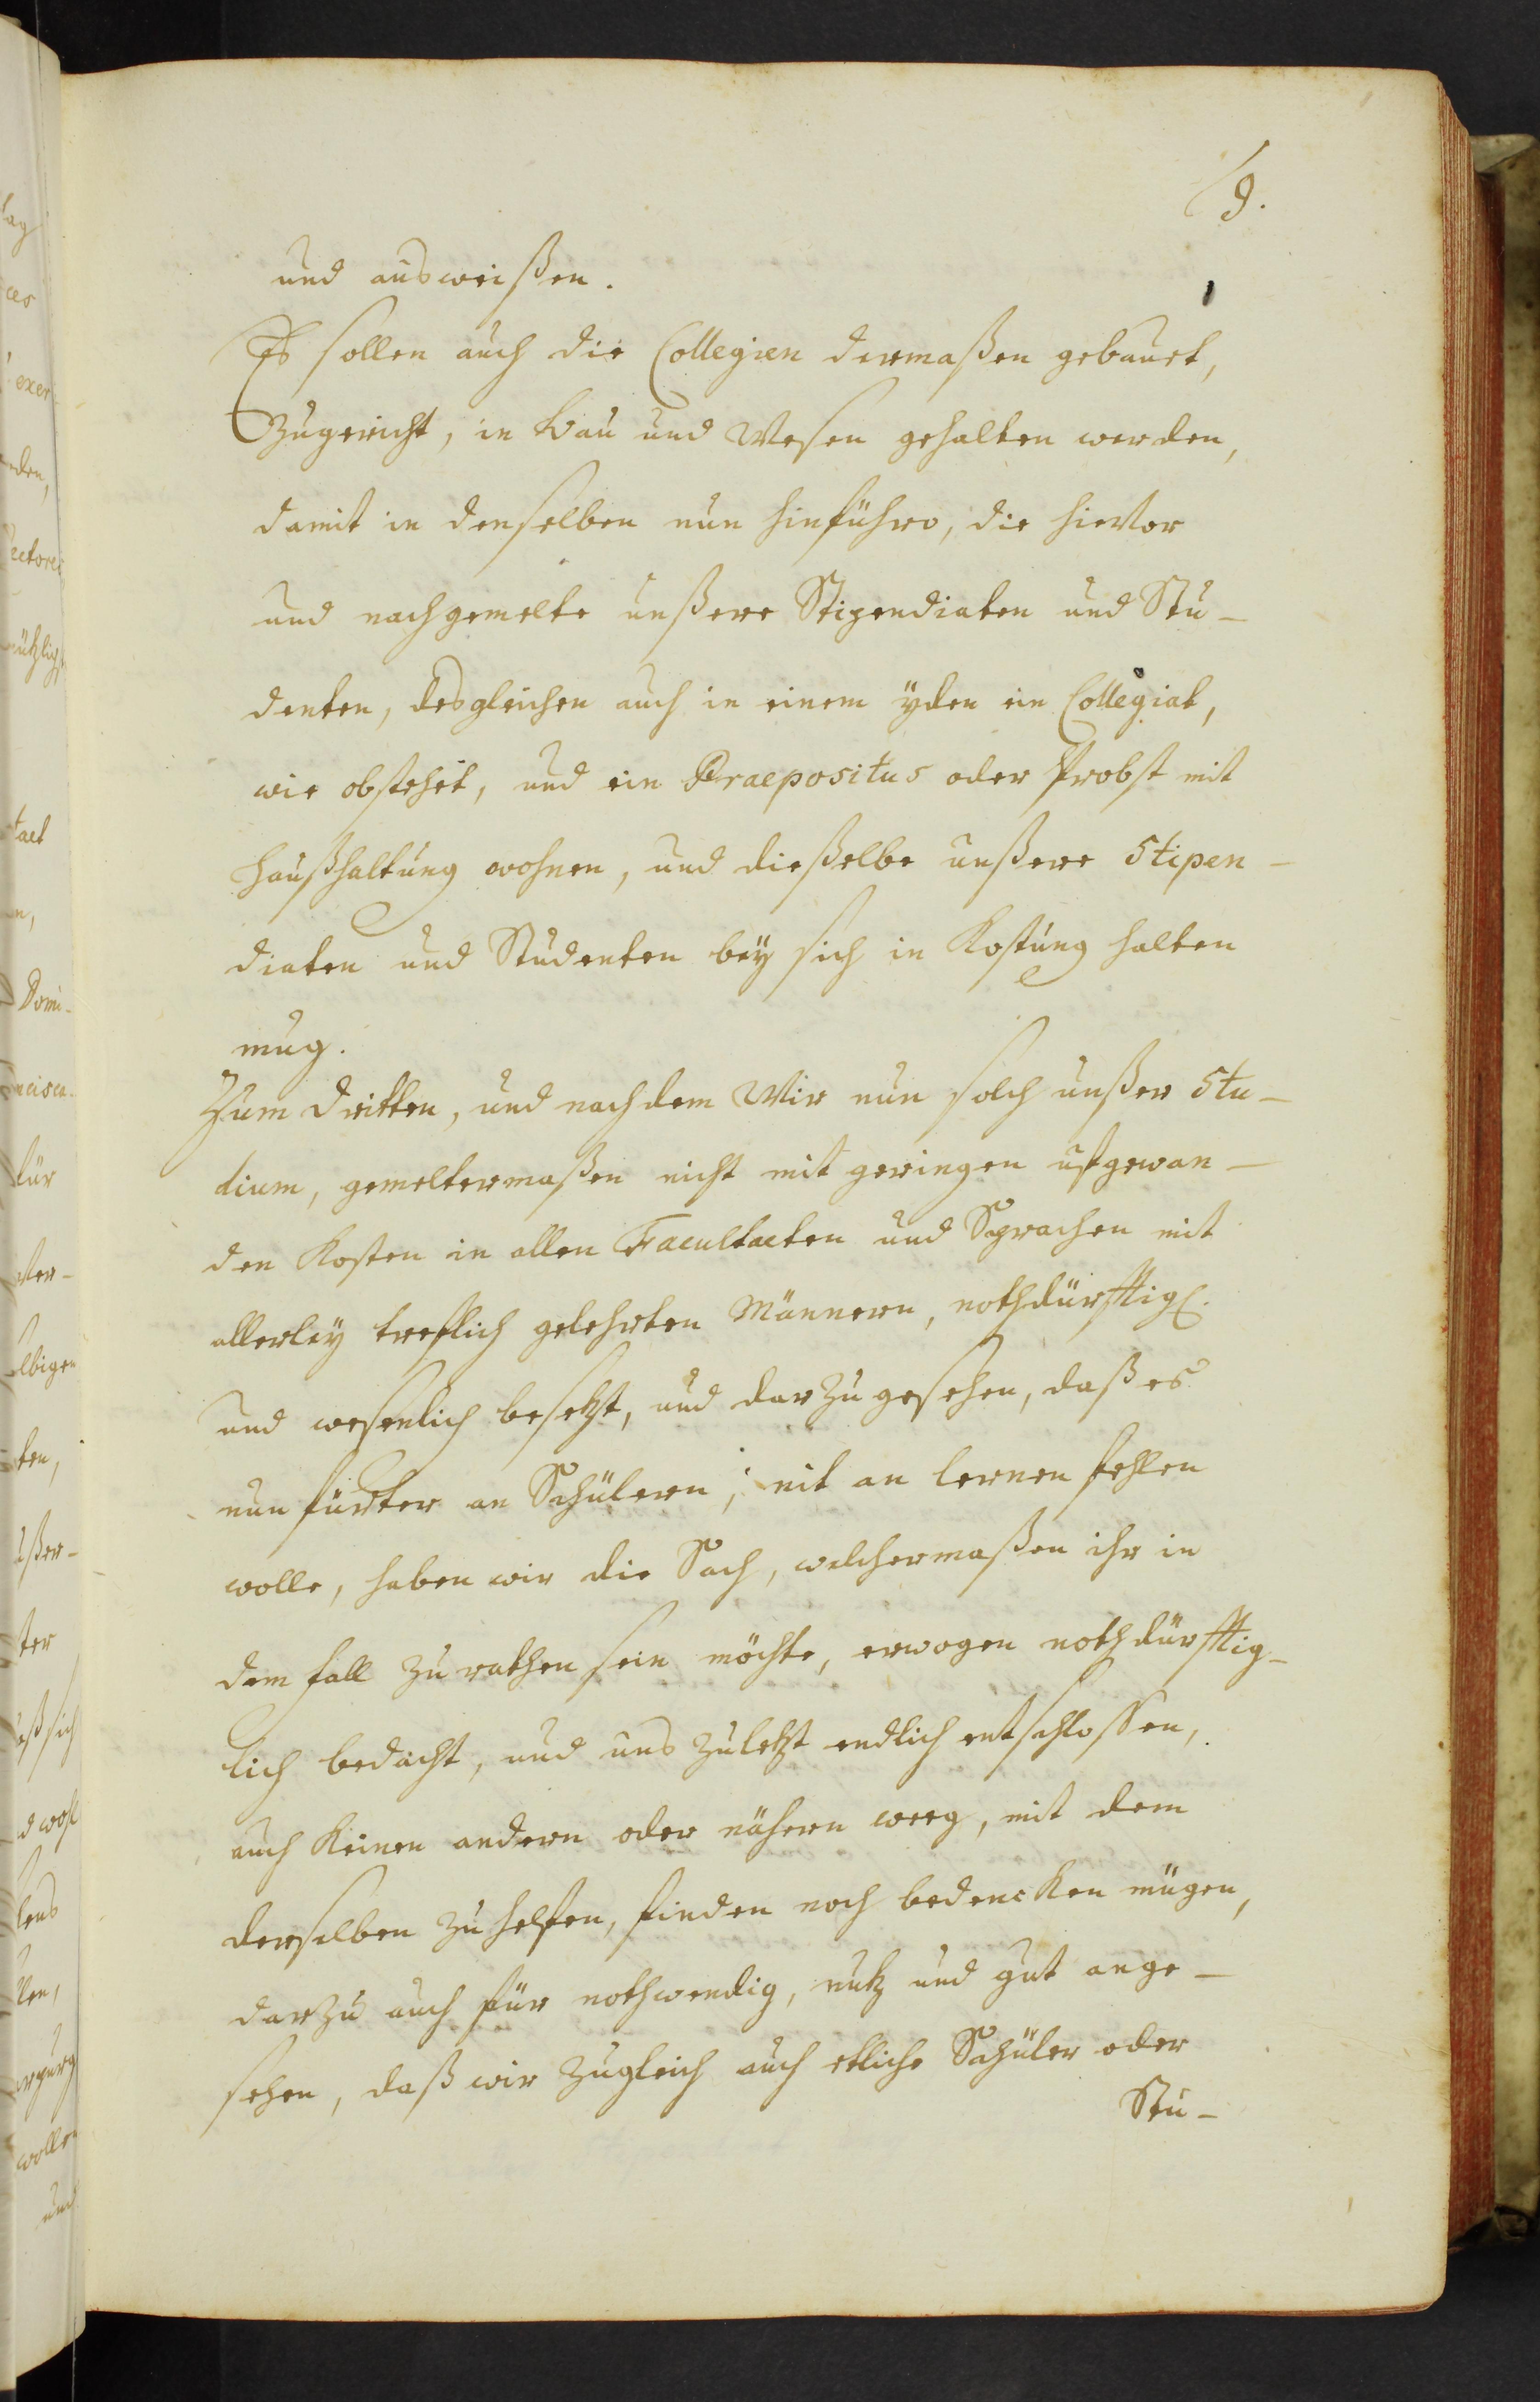 9.
und ausweißen.
Es sollen auch die Collegien dermaßen gebauet,
Zugericht, in bau und Wesen gehalten werden,
damit in denselben nun hinführo, die hievor
und nachgemelte unßere Stipendiaten und Stu-
denten, desgleichen auch in einem yden ein Collegiat,
wie obstehet, und ein Praepositus oder Probst mit
Haußhaltung wohnen, und dießelbe unßere Stipen-
diaten und Studenten bey sich in Kostung halten
mug.
Zum dritten, und nachdem Wir nun solch unßer Stu-
dium, gemeltermaßen nicht mit geringen ufgewan-
den Kosten in allen Facultaeten und Sprachen mit
allerley treflich gelehrten Männern, nothdürfftigl.
und wesenlich besetzt, und darzu gesehen, daß es
nun fürter an Schülern, nit an lernen fehlen
wolle, haben wir die Sach, welchermaßen ihr in
dem fall zu rathen sein möchte, erwogen nothdürfftig-
lich bedacht, und uns zuletzt endlich entschlossen,
auch Keinen andern oder nähern weeg, mit dem
derselben zu helfen, finden noch bedencken mügen,
darzu auch für nothwendig, nutz und gut ange-
sehen, daß wir zugleich auch etliche Schüler oder
Stu-